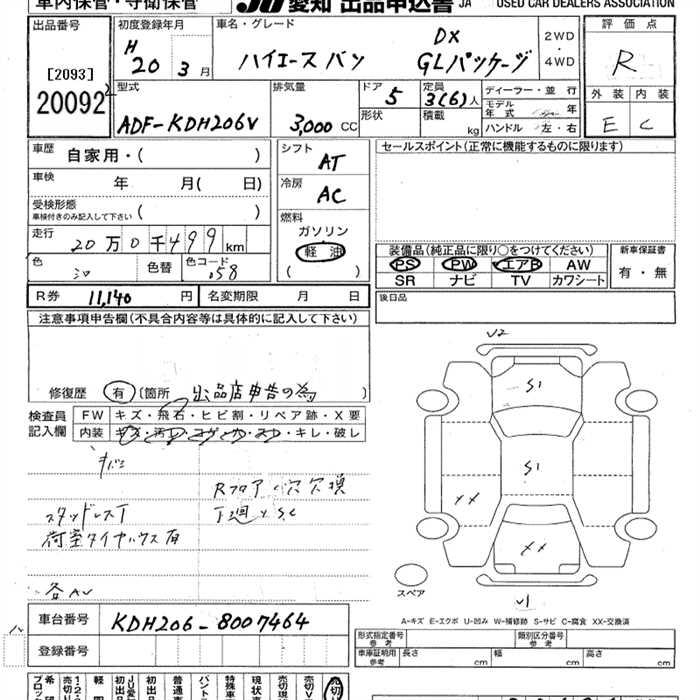 車内保管・守衛保管
JU 愛知 出品申込書 JA USED CAR DEALERS ASSOCIATION
出品番号
[2093]
20092
初度登録年月
H 20 3月
車名・グレード
ハイエースバン DX GLパッケージ
2WD
・
4WD
評価点
R
外装 内装
E C
型式
ADF-KDH206V
排気量
3,000 CC
ドア 5
形状
定員 3(6)人
積載 kg
ディーラー・並行
モデル年式 年
ハンドル 左・右
車歴 自家用・( )
車検 年 月( 日)
受検形態
車検付きのみ記入して下さい ( )
走行 20万0千499km
色 色替 色コード 058
シフト AT
冷房 AC
燃料
ガソリン
軽油
( )
セールスポイント(正常に機能するものに限ります)
装備品(純正品に限り○をつけてください)
PS PW エアB AW
SR ナビ TV カワシート
新車保証書
有・無
R券 11,140 円 名変期限 月 日
後日品
注意事項申告欄(不具合内容等は具体的に記入して下さい)
修復歴 有 [箇所 出品店申告の為 ]
検査員
記入欄
FW キズ・飛石・ヒビ割・リペア跡・X要
内装 キズ・汚レ・コゲ・穴・スレ・キレ・破レ
Rフロア 穴 欠損
スタッドレスT
下廻 X S.C
荷室タイヤハウス 有
V2
S1
S1
XX
XX
V1
スペア
A-キズ E-エクボ U-凹み W-補修跡 S-サビ C-腐食 XX-交換済
車台番号 KDH206-8007464
登録番号
形式指定番号 参考
類別区分番号 参考
車庫証明用 参考 長さ cm 幅 cm 高さ cm